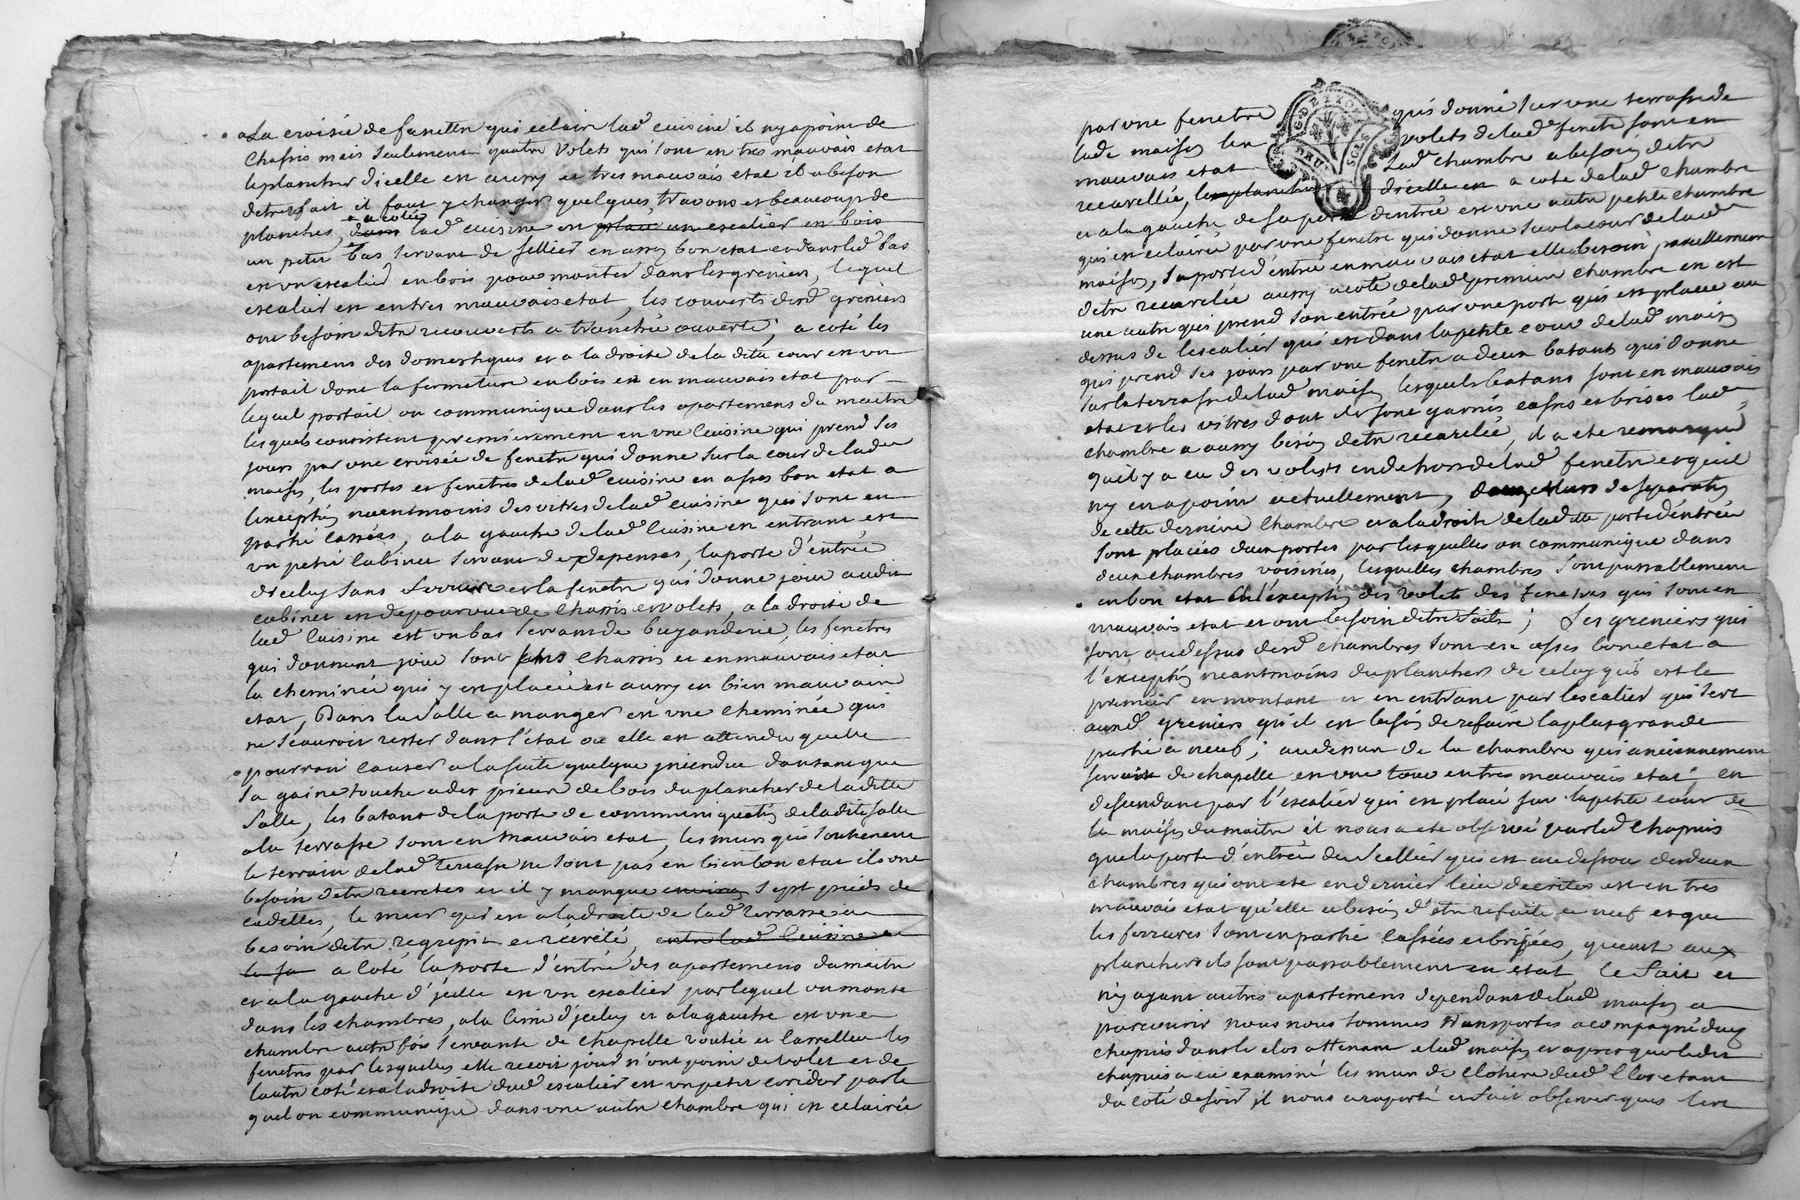 La croisée de fenetre qui eclaire lad^e cuisine et ny a point de
Chassis mais seulement quatre Volets qui sont en tres mauvais etat
le plancher d'icelle en aussy et tres mauvais etat il a besoin
detre refait il faut y changer quelques travons et beaucoup de
planches, a coté lad^e cuisine en place un escalier en bois
un petit bas servant de sellier en assy bon etat et dans led^t bas
en un escalier en bois pour monter dans les greniers, lequel
escalier en en tres mauvais etat, les couverts desd^s greniers
ont besoin detre recouverts a tranchée ouverte; a coté les
apartemens des domestiques et a la droite de la dite cour en un
portail dont la fermeture en bois en en mauvais etat par
lequel portail on communique dans les apartemens du maitre
lesquels consistent premierement en une cuisine qui prend ses
jours par une croisée de fenetre qui donne sur la cour de lad^e
maison, les portes et fenetres de lad^e cuisine en asses bon etat a
lexception neantmoins des vitres de lad^e cuisine qui sont en
partie cassées, a la gauche de lad^e cuisine en entrant est
un petit cabinet servant de depenses, la porte d'entrée
diceluy sans serrure et la fenetre qui donne jour audit
cabinet en depourvue de chassis et volets, a la droite de
lad^e cuisine est un bas servant de buyanderie, les fenetres
qui donnent jour sont sans chassis et en mauvais etat
la cheminée qui y en placée est aussy en bien mauvais
etat, Dans la salle a manger en une cheminée qui
ne scauroit rester dans l'état ou elle en attendu quelle
pourroit causer a la suite quelque incendie dautant que
sa gaine touche a des pieces de bois du plancher de la dite
salle, les batans de la porte de communication de la dite salle
a la terrasse sont en mauvais etat, les murs qui soutiennent
le terrain de lad^e terrasse ne sont pas en bien bon etat ils ont
besoin detre recrepis et il y manque environ sept pieds de
cadettes, le mur qui en a la droite de lad^e terrasse a
besoin detre regrepit et récrété, entre lad^e cuisine et
la sa a coté la porte d'entrée des apartemens du maitre
et a la gauche d'icelle en un escalier par lequel on monte
dans les chambres, a la cime d'iceluy et a la gauche est une
chambre autre fois servante de chapelle voutée et carrellée les
fenetres par lesquelles elle reçoit jour n'ont point de volet et de
lautre coté et a la droite dud^t escalier en un petit coridor par le
quel on communique dans une autre chambre qui en eclairée
par une fenetre qui donne sur une terrasse de
lade maison les volets de lad^e fenetre sont en
mauvais etat Lad^e chambre a besoin detre
recarellée, le plancher d'icelle en a coté de lad^e chambre
et a la gauche de sa porte dentrée est une autre petite chambre
qui en eclairée par une fenetre qui donne sur la cour de lad^e
maison, sa porte d'entrée en mauvais etat elle a besoin pareillement
detre recarelée aussy a coté de lad^e premiere chambre en est
une autre qui prend son entrée par une porte qui est placée au
dessus de lescalier qui en dans la petite cour de lad^e maison
qui prend ses jours par une fenetre a deux batants qui donne
sur la terrasse de lad^e maison lesquels batans sont en mauvais
etat et les vitres dont ils sont garnis cassés et brisés lad^e
chambre a aussy besoin detre recarelée, il a eté remarqué
quil y a eu des volets en dehors de lad^e fenetre et quil
ny en a point actuellement, de cette derniere chambre et a la droite de lad^e porte d'entrée
sont placées deux portes par lesquelles on communique dans
deux chambres voisines, lesquelles chambres sont passablement
en bon etat a l'exception des volets des fenetres qui sont en
mauvais etat et ont besoin detre faits; Les greniers qui
sont au dessus desd^s chambres sont en asses bon etat a
l'exception neantmoins du plancher de celuy qui est le
premier en montant et en entrant par lescalier qui sert
auxd^s greniers qu'il en besoin de refaire la plus grande
partie a neuf; au dessus de la chambre qui anciennement
servait de chapelle en une tour en tres mauvais etat; en
descendant par l'escalier qui en placé sur la petite cour de
la maison du maitre il nous a eté observé par led^t Chapuis
que la porte d'entrée du scellier qui est au dessous desdeux
chambres qui ont eté en dernier lieu decrites est en tres
mauvais etat qu'elle a besoin d'etre refaite a neuf et que
les ferrures sont en partie cassées et brisées, quant aux
planchers ils sont passablement en etat, Ce fait et
n'y ayant autres apartemens dependant de lad^e maison a
parcourir nous nous sommes transportés acompagné dud^t
chapuis dans le clos attenant a lad^e maison et apres que ledit
chapuis a eu examiné les murs de cloture dud^t Clos etant
du coté de soir, il nous a raporté et fait observer que les